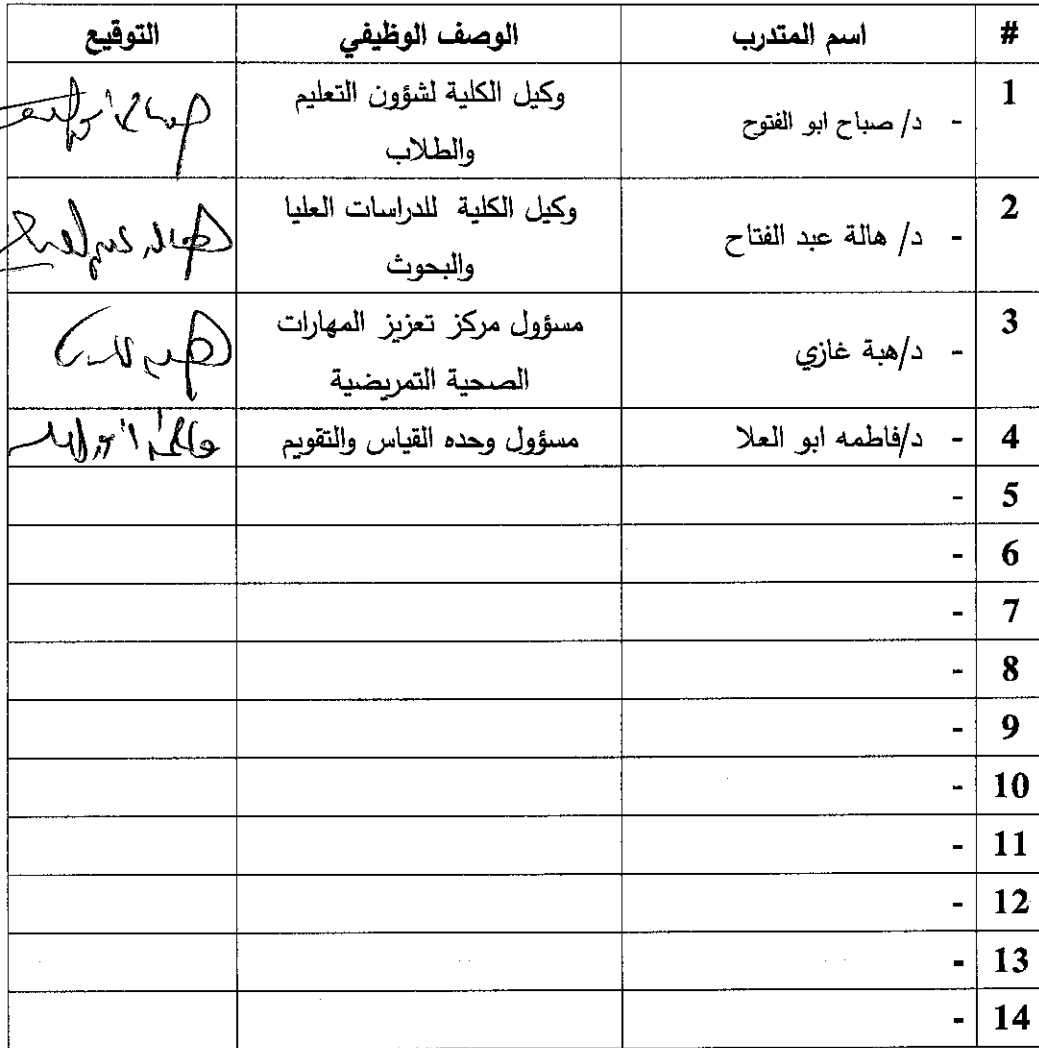 # اسم المتدرب الوصف الوظيفي التوقيع
1 - د/ صباح ابو الفتوح وكيل الكلية لشؤون التعليم
والطلاب
2 - د/ هالة عبد الفتاح وكيل الكلية للدراسات العليا
والبحوث
3 - د/هبة غازي مسؤول مركز تعزيز المهارات
الصحية التمريضية
4 - د/فاطمه ابو العلا مسؤول وحده القياس والتقويم
5 -
6 -
7 -
8 -
9 -
10 -
11 -
12 -
13 -
14 -